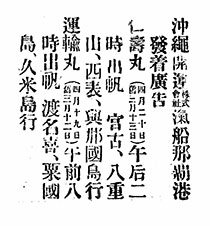 沖繩開運株式會社滊船那覇港
發着廣告
仁壽丸(四月二十日舊三月十三日)午后二
時出帆 宮古、八重
山、西表、與那國島行
運輸丸(四月十九日舊三月十二日)午前八
時出帆 渡名喜、粟國
島、久米島行